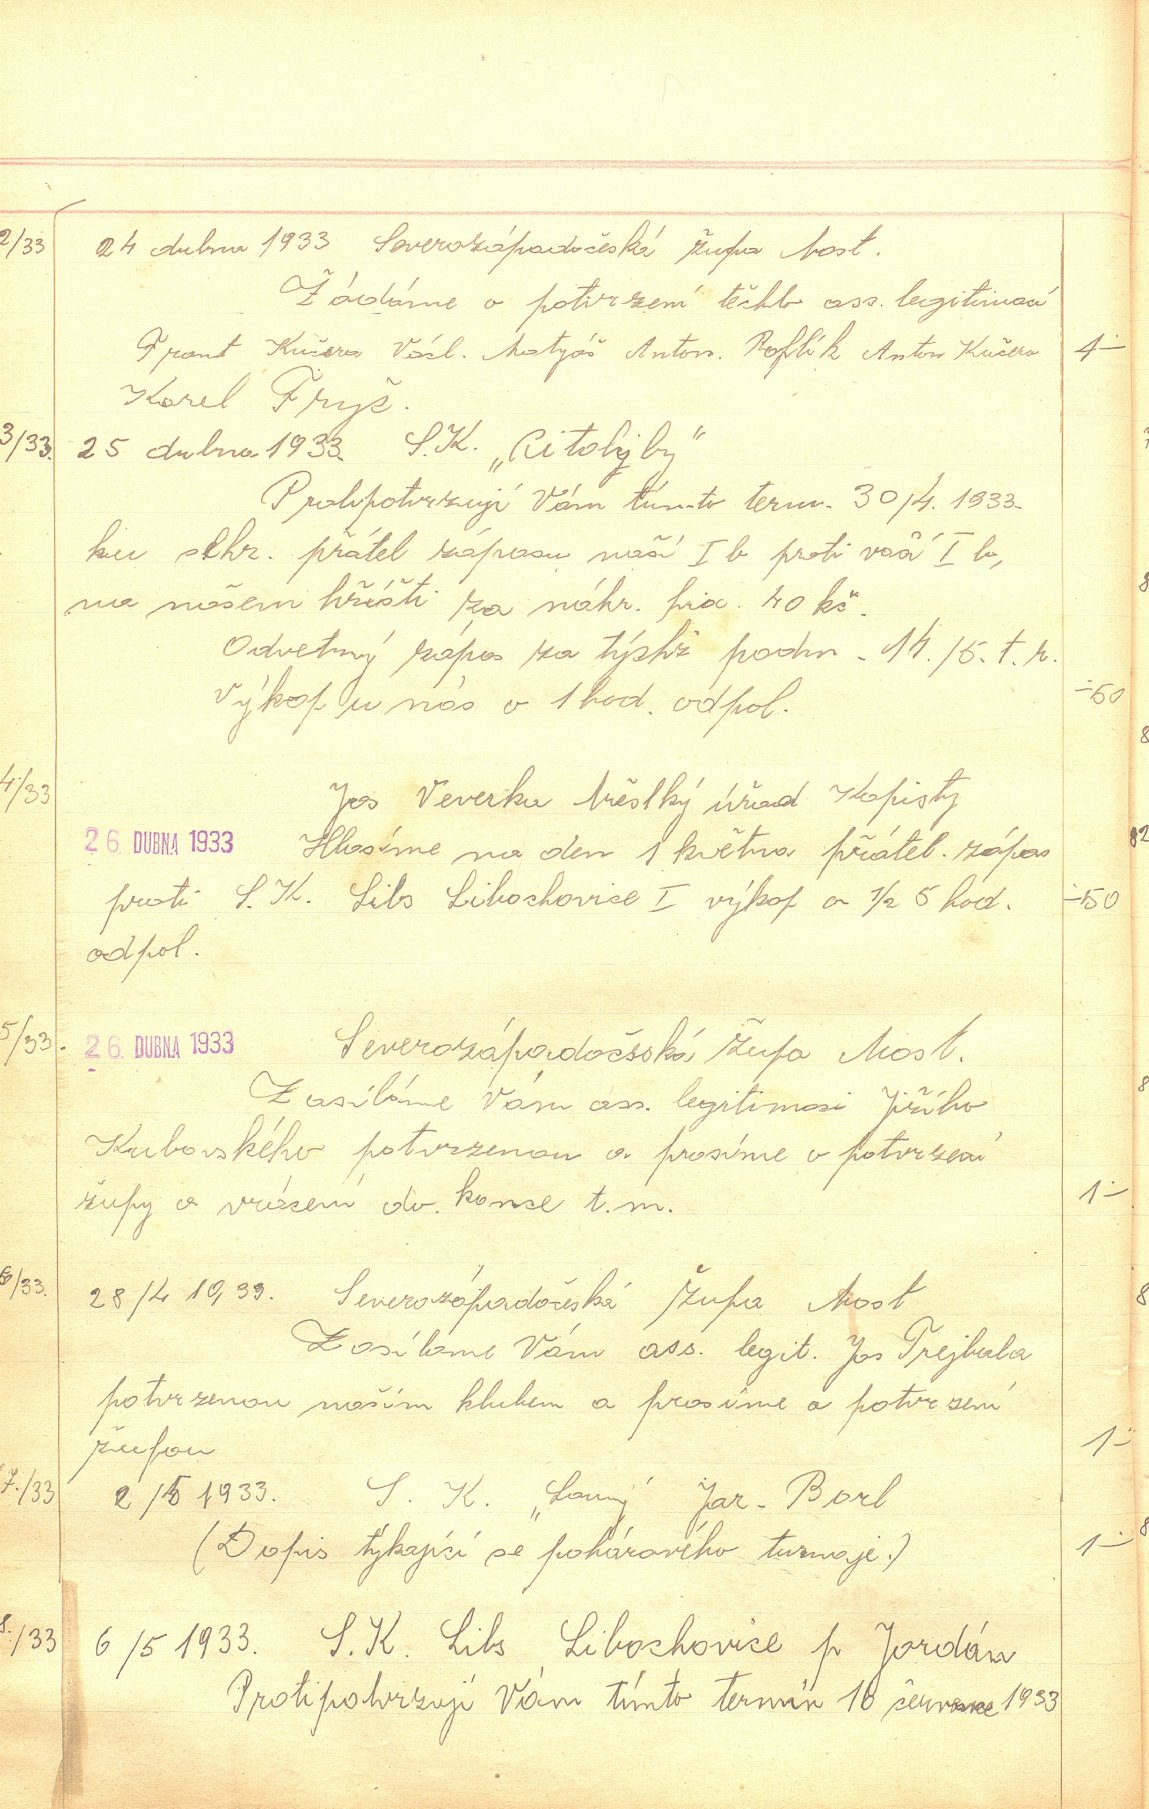 2/33 24 dubna 1933 Severozápadočeská župa Most.
Žádáme o potvrzení těchto ass. legitimací
Frant Kučera Václ. Matyáš Anton. Anton Kučera 4-
Karel Fryš.
3/33. 25 dubna 1933. S.K. „Litohyby"
potvrzuji Vám tímto term. 30/4. 1933.
ku sehr. přátel zápasu naší I b proti vaší I b,
na našem hřišti za náhr. 40 kč.
Odvetný zápas za týchž podm. 14./5. t. r.
Výkop u nás o 1 hod. odpol. -50
4/33 Jos Veverka úřad Kopisty
26. DUBNA 1933 Hlasíme na den 1 května přátel. zápas
proti S.K. Libs Libochovice I výkop o ½ 5 hod. -50
odpol.
5/33. 26. DUBNA 1933 Severozápadočeská Župa Most.
Zasíláme Vám ass. legitimaci Jiřího
Kubovského potvrzenou a prosíme o potvrzení
župy a vrácení do konce t.m. 1-
6/33. 28/4 1933. Severozápadočeská Župa Most
Zasíláme Vám ass. legit. Jos Trejbala
potvrzenou naším klubem a prosíme o potvrzení
župou 1-
7./33 2/5 1933. S. K. „Louny Jar. Borl
(Dopis týkající se pohárového turnaje.) 1-
8./33 6/5 1933. S.K. Libs Libochovice p Jordán
Protipotvrzuji Vám tímto termín 16 července 1933